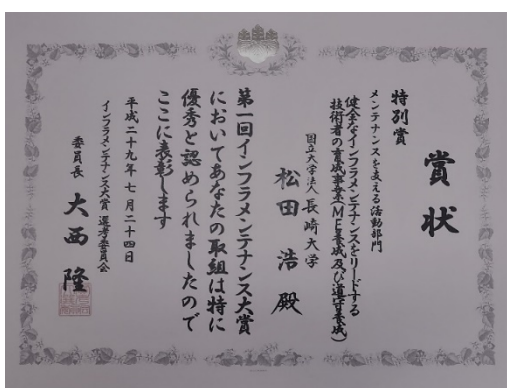 賞状
特別賞
メンテナンスを支える活動部門
健全なインフラメンテナンスをリードする
技術者の育成事業(ME養成及び道守養成)
国立大学法人長崎大学
松田 浩 殿
第一回インフラメンテナンス大賞
においてあなたの取組は特に
優秀と認められましたので
ここに表彰します
平成二十九年七月二十四日
インフラメンテナンス大賞 選考委員会
委員長 大西 隆